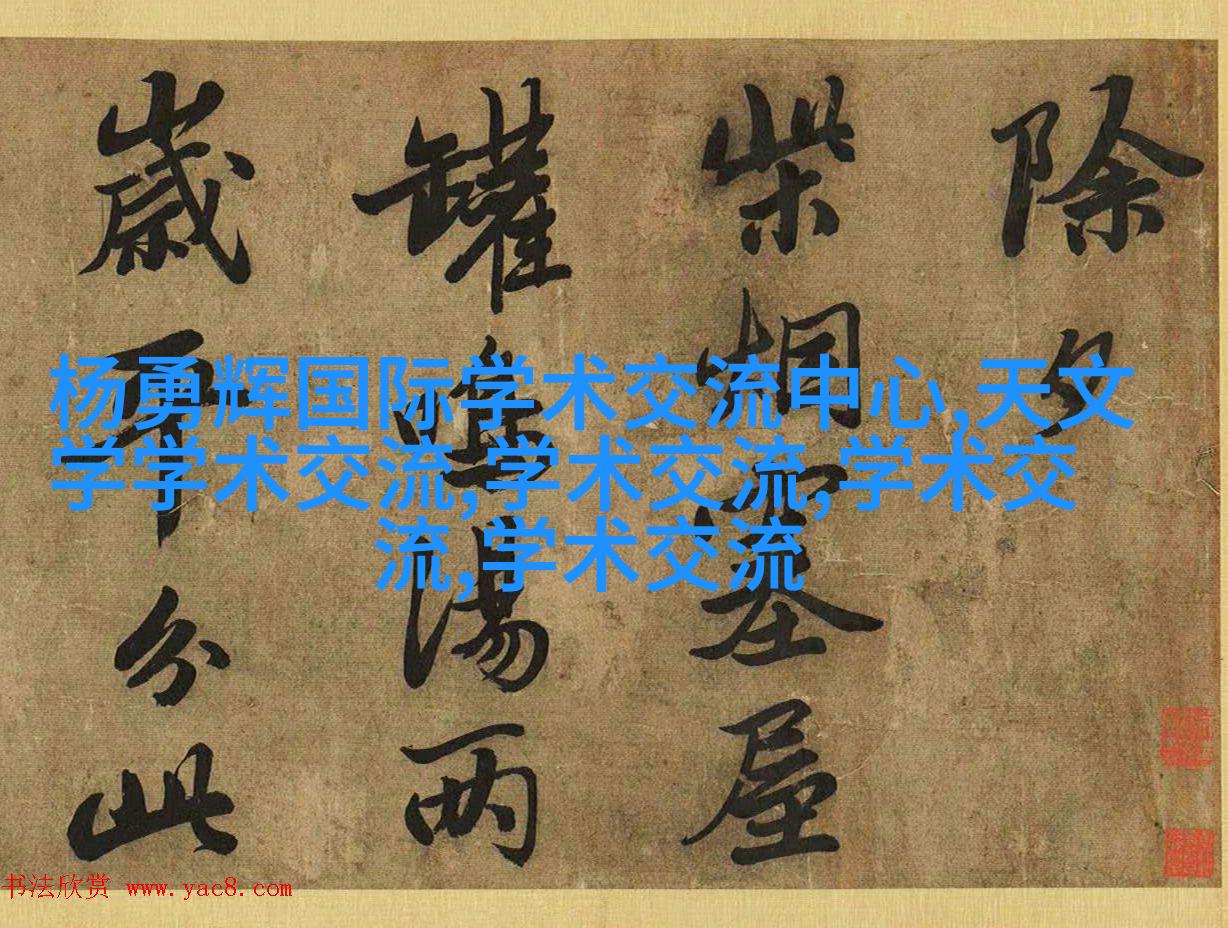 杨勇辉国际学术交流中心,天文
学学术交流,学术交流,学术交
流,学术交流
除夕
柴烟塞屋
罐鳴湯兩
歲平分此
书法欣赏 www.yac8.com